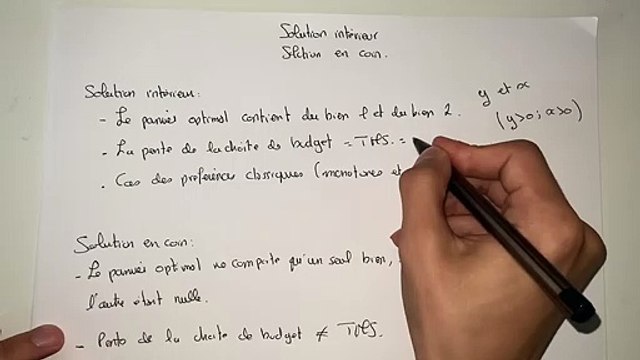 Solution intérieur
Slction en coin.
Solution intérieur:
- Le panier optimal contient du bien 1 et du bien 2.
y et x
(y>0; x>0)
- La pente de la droite de budget = TMS. =
- Cas des préférence classiques (monotones et
Solution en coin:
- Le panier optimal ne comporte qu'un seul bien,
l'autre étant nulle.
- Pente de la droite de budget ≠ TMS.